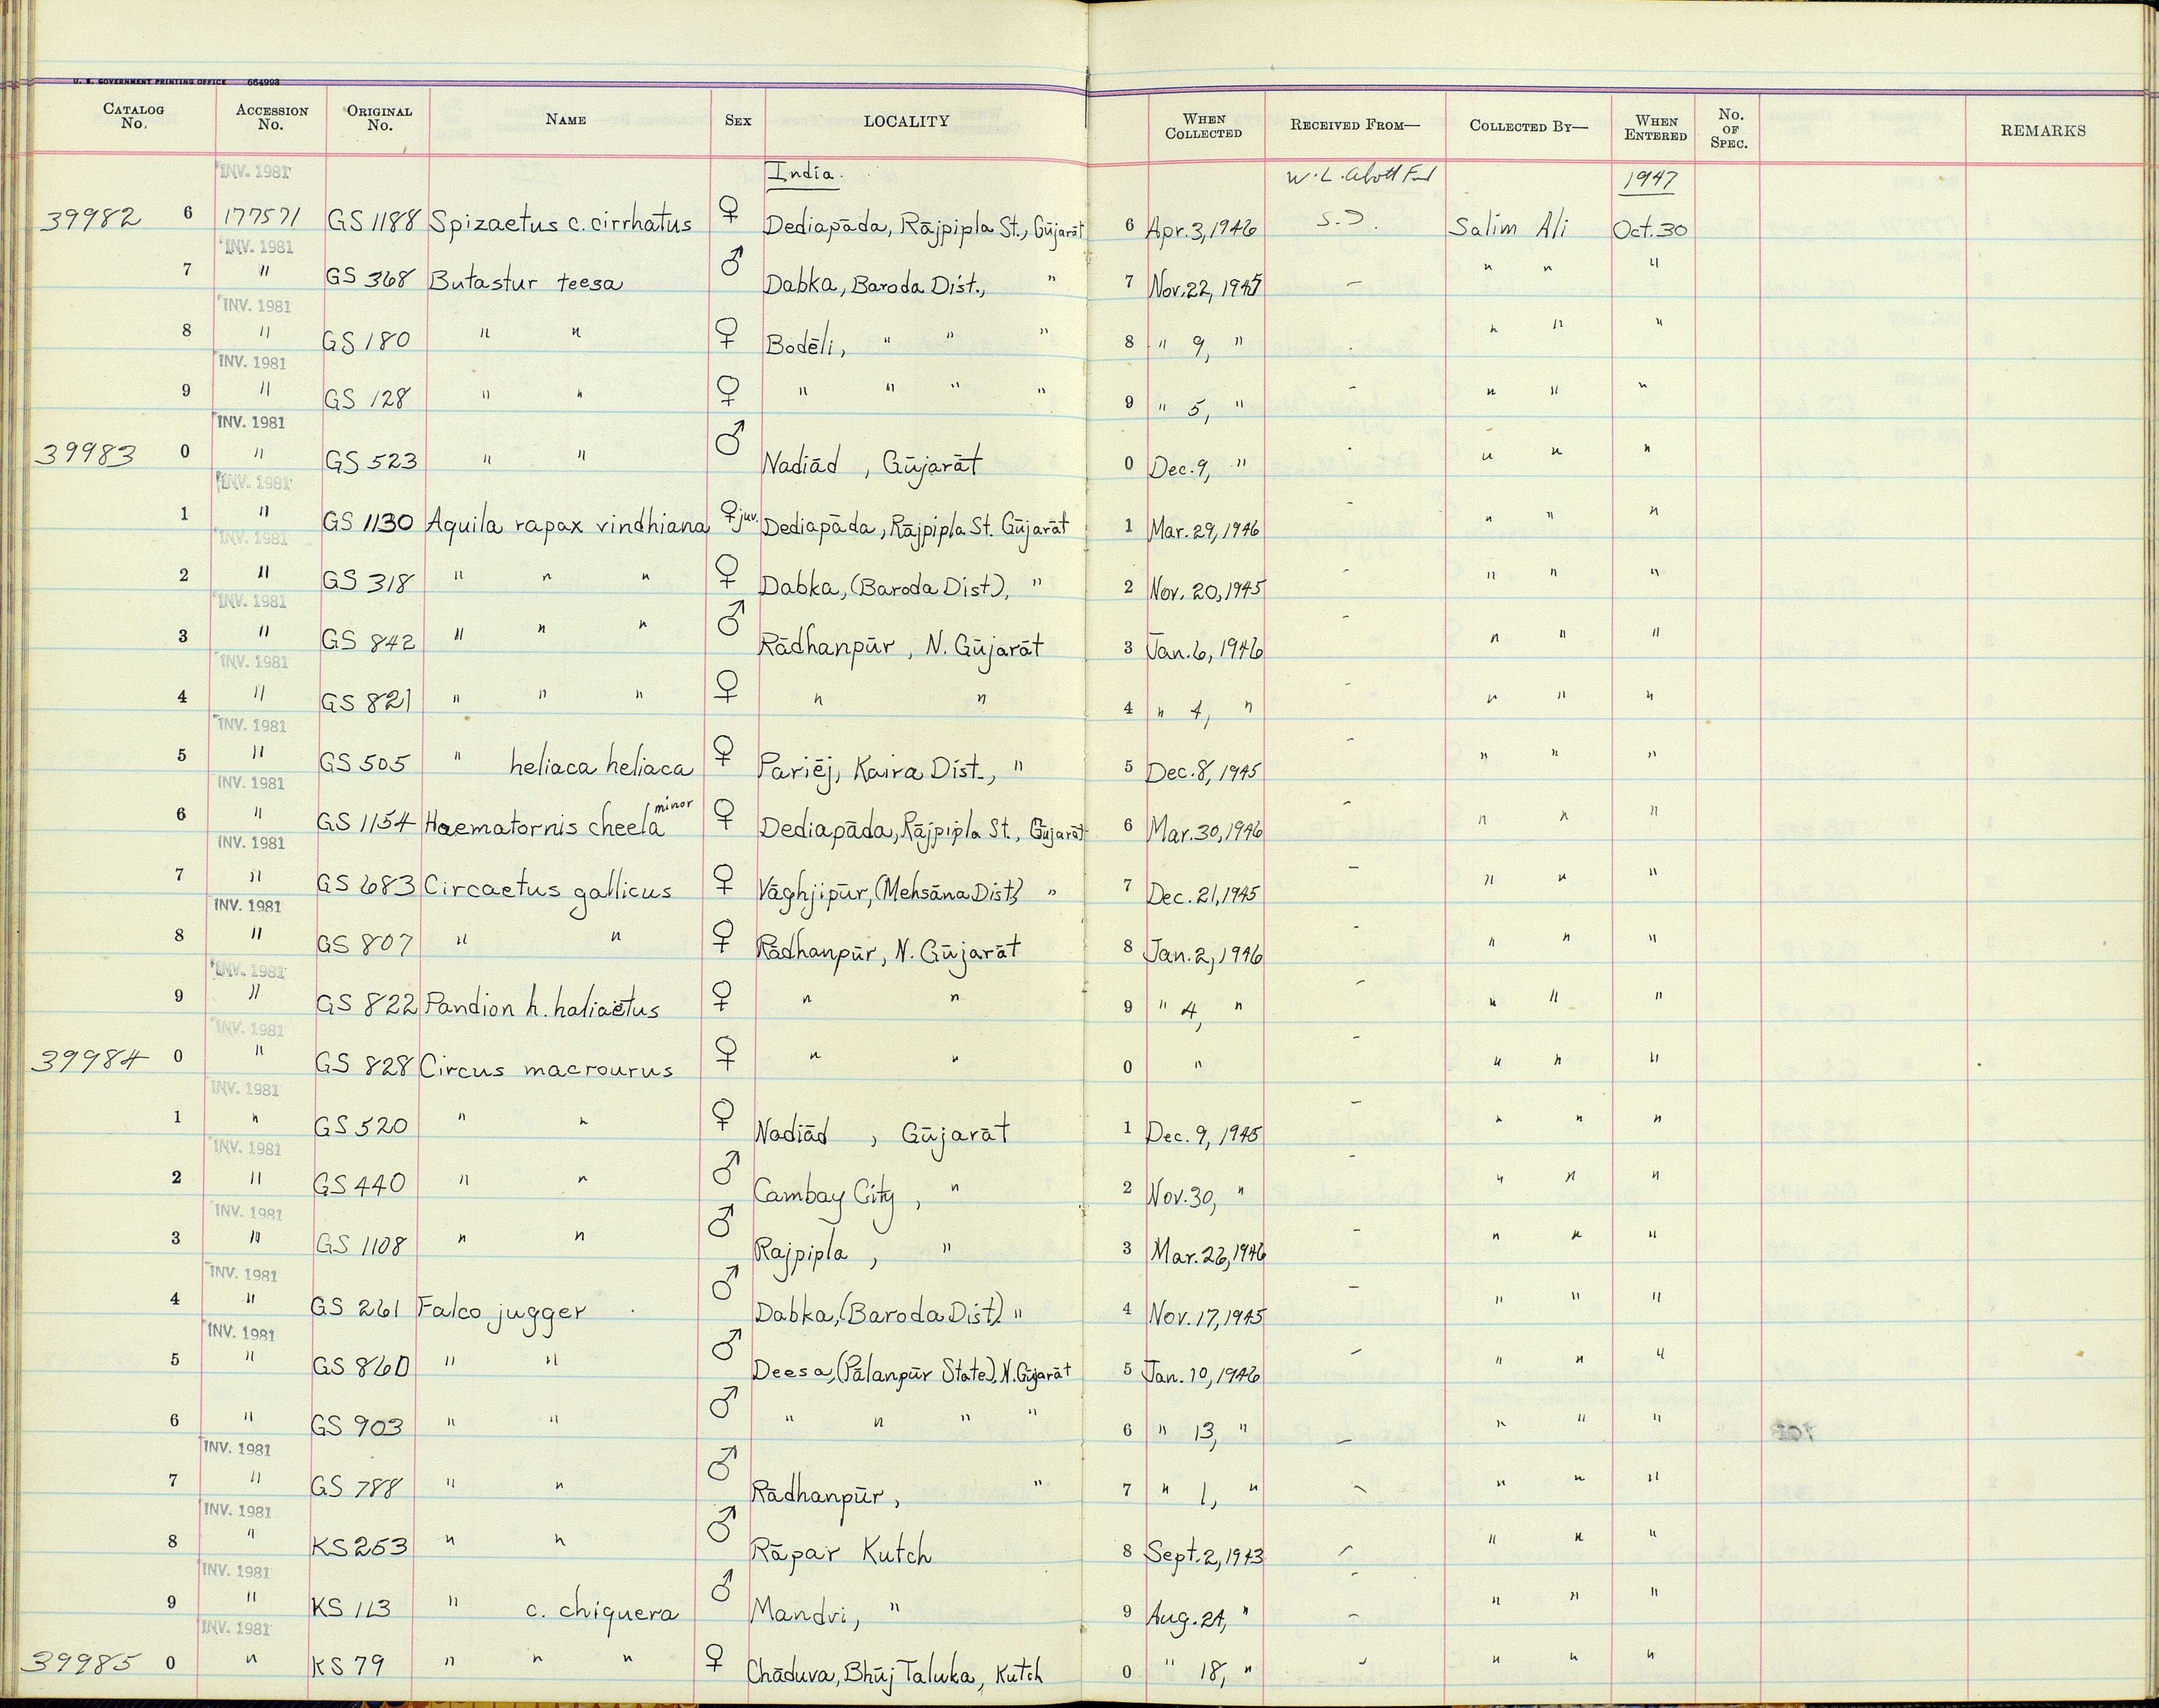 U. S. GOVERNMENT PRINTING OFFICE 664993
CATALOG No. ACCESSION No. ORIGINAL No. NAME SEX LOCALITY WHEN COLLECTED RECEIVED FROM— COLLECTED BY— WHEN ENTERED No. OF SPEC. REMARKS
INV. 1981 India. W. L. Abott Fund 1947
39982 6 177571 GS 1188 Spizaetus c. cirrhatus ♀ Dediapāda, Rājpipla St., Gūjarāt 6 Apr. 3, 1946 S.D. Salim Ali Oct. 30
INV. 1981
7 " GS 368 Butastur teesa ♂ Dabka, Baroda Dist., " 7 Nov. 22, 1945 – " " "
INV. 1981
8 " GS 180 " " ♀ Bodēli, " " " 8 " 9, " - " " "
INV. 1981
9 " GS 128 " " ♀ " " " " 9 " 5, " – " " "
INV. 1981
39983 0 " GS 523 " " ♂ Nadiād, Gūjarāt 0 Dec. 9, " - " " "
INV. 1981
1 " GS 1130 Aquila rapax vindhiana ♀ juv. Dediapāda, Rājpipla St. Gūjarāt 1 Mar. 29, 1946 – " " "
INV. 1981
2 " GS 318 " " " ♀ Dabka, (Baroda Dist), " 2 Nov. 20, 1945 – " " "
INV. 1981
3 " GS 842 " " " ♂ Rādhanpūr, N. Gūjarāt 3 Jan. 6, 1946 – " " "
INV. 1981
4 " GS 821 " " " ♀ " " 4 " 4, " – " " "
INV. 1981
5 " GS 505 " heliaca heliaca ♀ Pariēj, Kaira Dist., " 5 Dec. 8, 1945 – " " "
INV. 1981
6 " GS 1154 Haematornis cheela minor ♀ Dediapāda, Rājpipla St., Gūjarāt 6 Mar. 30, 1946 – " " "
INV. 1981
7 " GS 683 Circaetus gallicus ♀ Vāghjipūr, (Mehsāna Dist) " 7 Dec. 21, 1945 – " " "
INV. 1981
8 " GS 807 " " ♀ Rādhanpūr, N. Gūjarāt 8 Jan. 2, 1946 – " " "
INV. 1981
9 " GS 822 Pandion h. haliaëtus ♀ " " 9 " 4, " – " " "
INV. 1981
39984 0 " GS 828 Circus macrourus ♀ " " 0 " – " " "
INV. 1981
1 " GS 520 " " ♀ Nadiād, Gūjarāt 1 Dec. 9, 1945 – " " "
INV. 1981
2 " GS 440 " " ♂ Cambay City, " 2 Nov. 30, " – " " "
INV. 1981
3 " GS 1108 " " ♂ Rajpipla, " 3 Mar. 26, 1946 – " " "
INV. 1981
4 " GS 261 Falco jugger ♂ Dabka, (Baroda Dist) " 4 Nov. 17, 1945 – " " "
INV. 1981
5 " GS 860 " " ♂ Deesa, (Pālanpūr State), N. Gūjarāt 5 Jan. 10, 1946 – " " "
6 " GS 903 " " ♂ " " " " 6 " 13, " – " " "
INV. 1981
7 " GS 788 " " ♂ Rādhanpūr, " 7 " 1, " – " " "
INV. 1981
8 " KS 253 " " ♂ Rāpar Kutch 8 Sept. 2, 1943 – " " "
INV. 1981
9 " KS 113 " c. chiquera ♂ Mandvi, " 9 Aug. 24, " – " " "
INV. 1981
39985 0 " KS 79 " " " ♀ Chāduva, Bhūj Taluka, Kutch 0 " 18, " – " " "